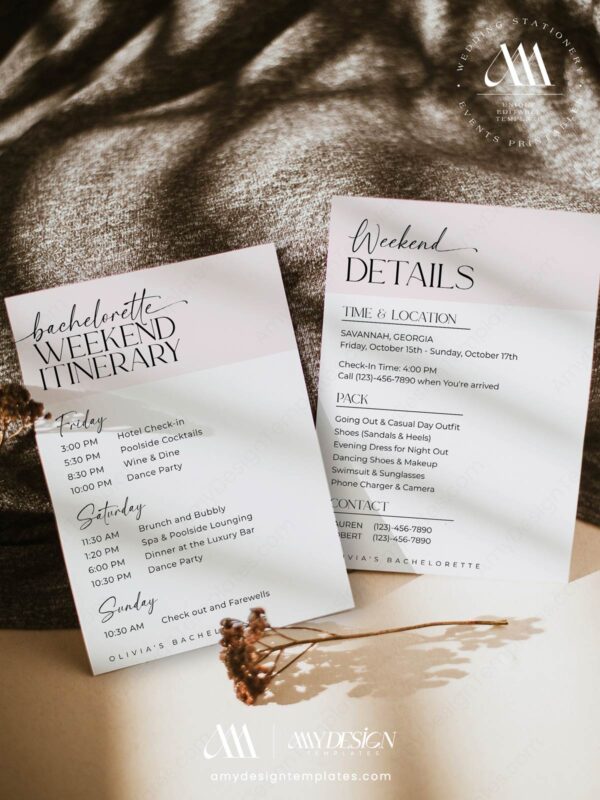 WEDDING STATIONERY
EVENTS PRINTABLE
bachelorette
WEEKEND
ITINERARY
Friday
3:00 PM Hotel Check-in
5:30 PM Poolside Cocktails
8:30 PM Wine & Dine
10:00 PM Dance Party
Saturday
11:30 AM Brunch and Bubbly
1:20 PM Spa & Poolside Lounging
6:00 PM Dinner at the Luxury Bar
10:30 PM Dance Party
Sunday
10:30 AM Check out and Farewells
OLIVIA'S
Weekend
DETAILS
TIME & LOCATION
SAVANNAH, GEORGIA
Friday, October 15th - Sunday, October 17th
Check-In Time: 4:00 PM
Call (123)-456-7890 when You're arrived
PACK
Going Out & Casual Day Outfit
Shoes (Sandals & Heels)
Evening Dress for Night Out
Dancing Shoes & Makeup
Swimsuit & Sunglasses
Phone Charger & Camera
CONTACT
(123)-456-7890
(123)-456-7890
BACHELORETTE
AMY DESIGN
TEMPLATES
amydesigntemplates.com